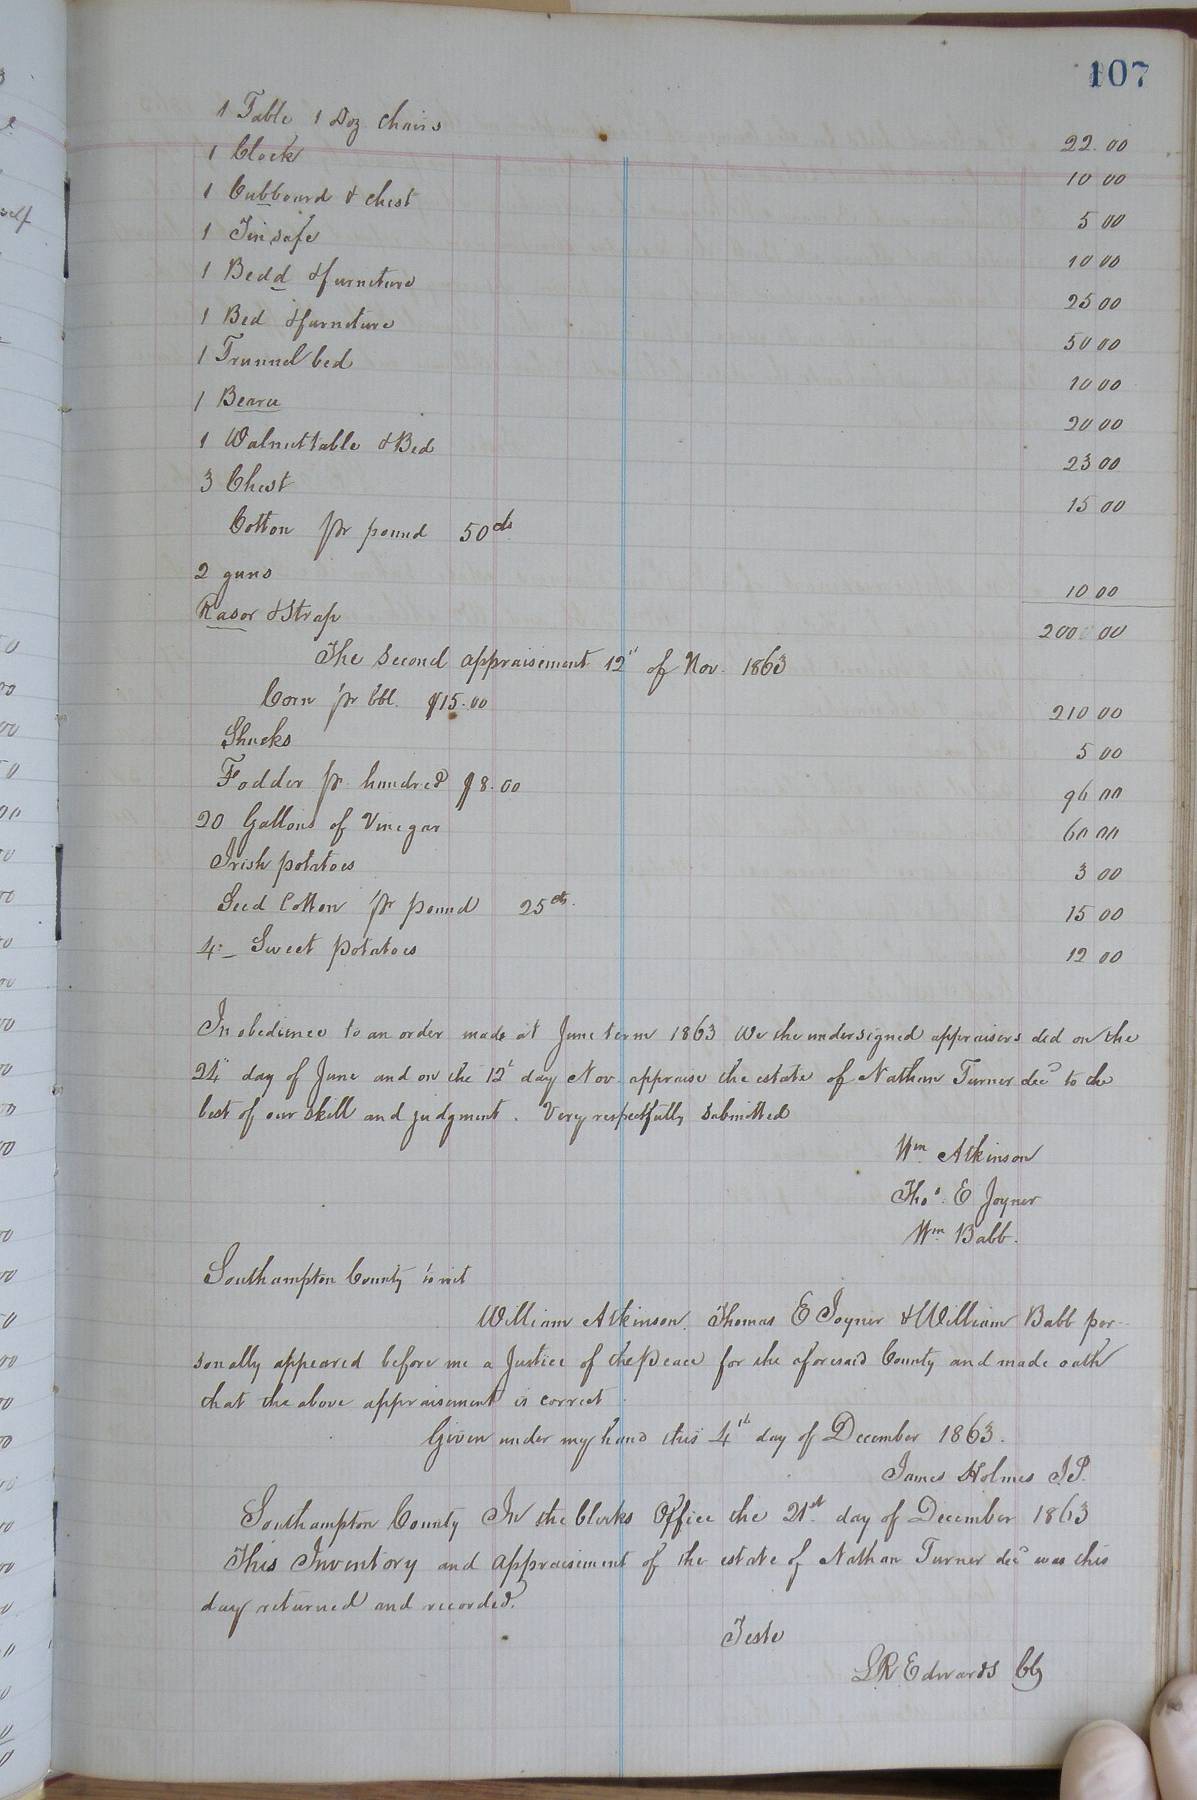 107
1 Table 1 Doz chairs 22.00
1 Clock 10 00
1 Cubboard & chest 5 00
1 Tin safe 10 00
1 Bedd & furniture 25 00
1 Bed & furneture 50 00
1 Trunnel bed 10 00
1 Bearu 20 00
1 Walnut table & Bed 23 00
3 Chest 15 00
Cotton pr pound 50cts
2 guns 10 00
Rasor & Strap 200 00
The Second appraisement 12" of Nov. 1863
Corn pr bbl. $15.00 210 00
Shucks 5 00
Fodder pr hundred $8.00 96 00
20 Gallons of Vinegar 60 00
Irish potatoes 3 00
Seed Cotton pr pound 25cts. 15 00
4 Sweet potatoes 12 00
In obedience to an order made at June term 1863 We the undersigned appraisers did on the
24" day of June and on the 12" day Nov appraise the estate of Nathan Turner decd to the
best of our skill and judgment. Very respectfully submitted
Wm Atkinson
Thos. E Joyner
Wm Babb.
Southampton County to wit
William Atkinson, Thomas E Joyner & William Babb per-
sonally appeared before me a Justice of the Peace for the aforesaid County and made oath
that the above appraisement is correct
Given under my hand this 4th day of December 1863.
James Holmes J.P.
Southampton County In the Clerks Office the 21st day of December 1863
This Inventory and appraisement of the estate of Nathan Turner decd was this
day returned and recorded.
Teste
L R Edwards Clk